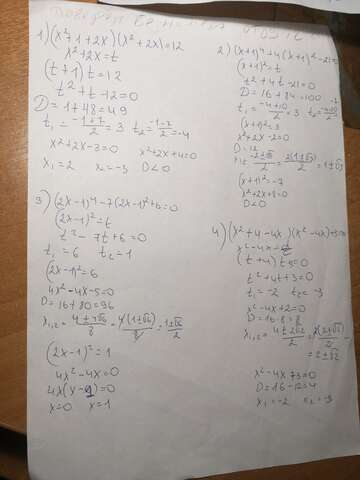 1) (x²+1+2x)(x²+2x)=12
x²+2x=t
(t+1)t=12
t²+t-12=0
D=1+48=49
t₁=(-1+7)/2=3 t₂=(-1-7)/2=-4
x²+2x-3=0 x²+2x+4=0
x₁=2 x₂=-3 D<0
2) (x+1)⁴+4(x+1)²-21=0
(x+1)²=t
t²+4t-21=0
D=16+84=100
t₁=(-4+10)/2=3
(x+1)²=3
x²+2x-2=0
D=12
(x+1)²=-7
x²+2x+8=0
D<0
3) (2x-1)⁴-7(2x-1)²+6=0
(2x-1)²=t
t²-7t+6=0
t₁=6 t₂=1
(2x-1)²=6
4x²-4x-5=0
D=16+80=96
(2x-1)²=1
4x²-4x=0
4x(x-1)=0
x=0 x=1
4) (x²+4-4x)(x²-4x)+3=0
x²-4x=t
(t+4)t+3=0
t²+4t+3=0
t₁=-2 t₂=-3
x²-4x+2=0
D=16-8=8
x²-4x+3=0
D=16-12=4
x₁=-2 x₂=-3